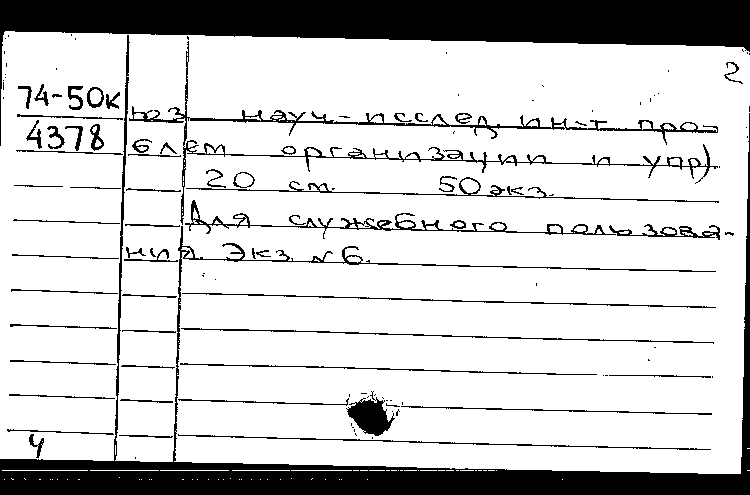 2
74-50к
4378
юз науч-исслед. ин-т про-
блем организации и упр)
20 см. 50 экз.
Для служебного пользова-
ния. Экз. №6.
ч